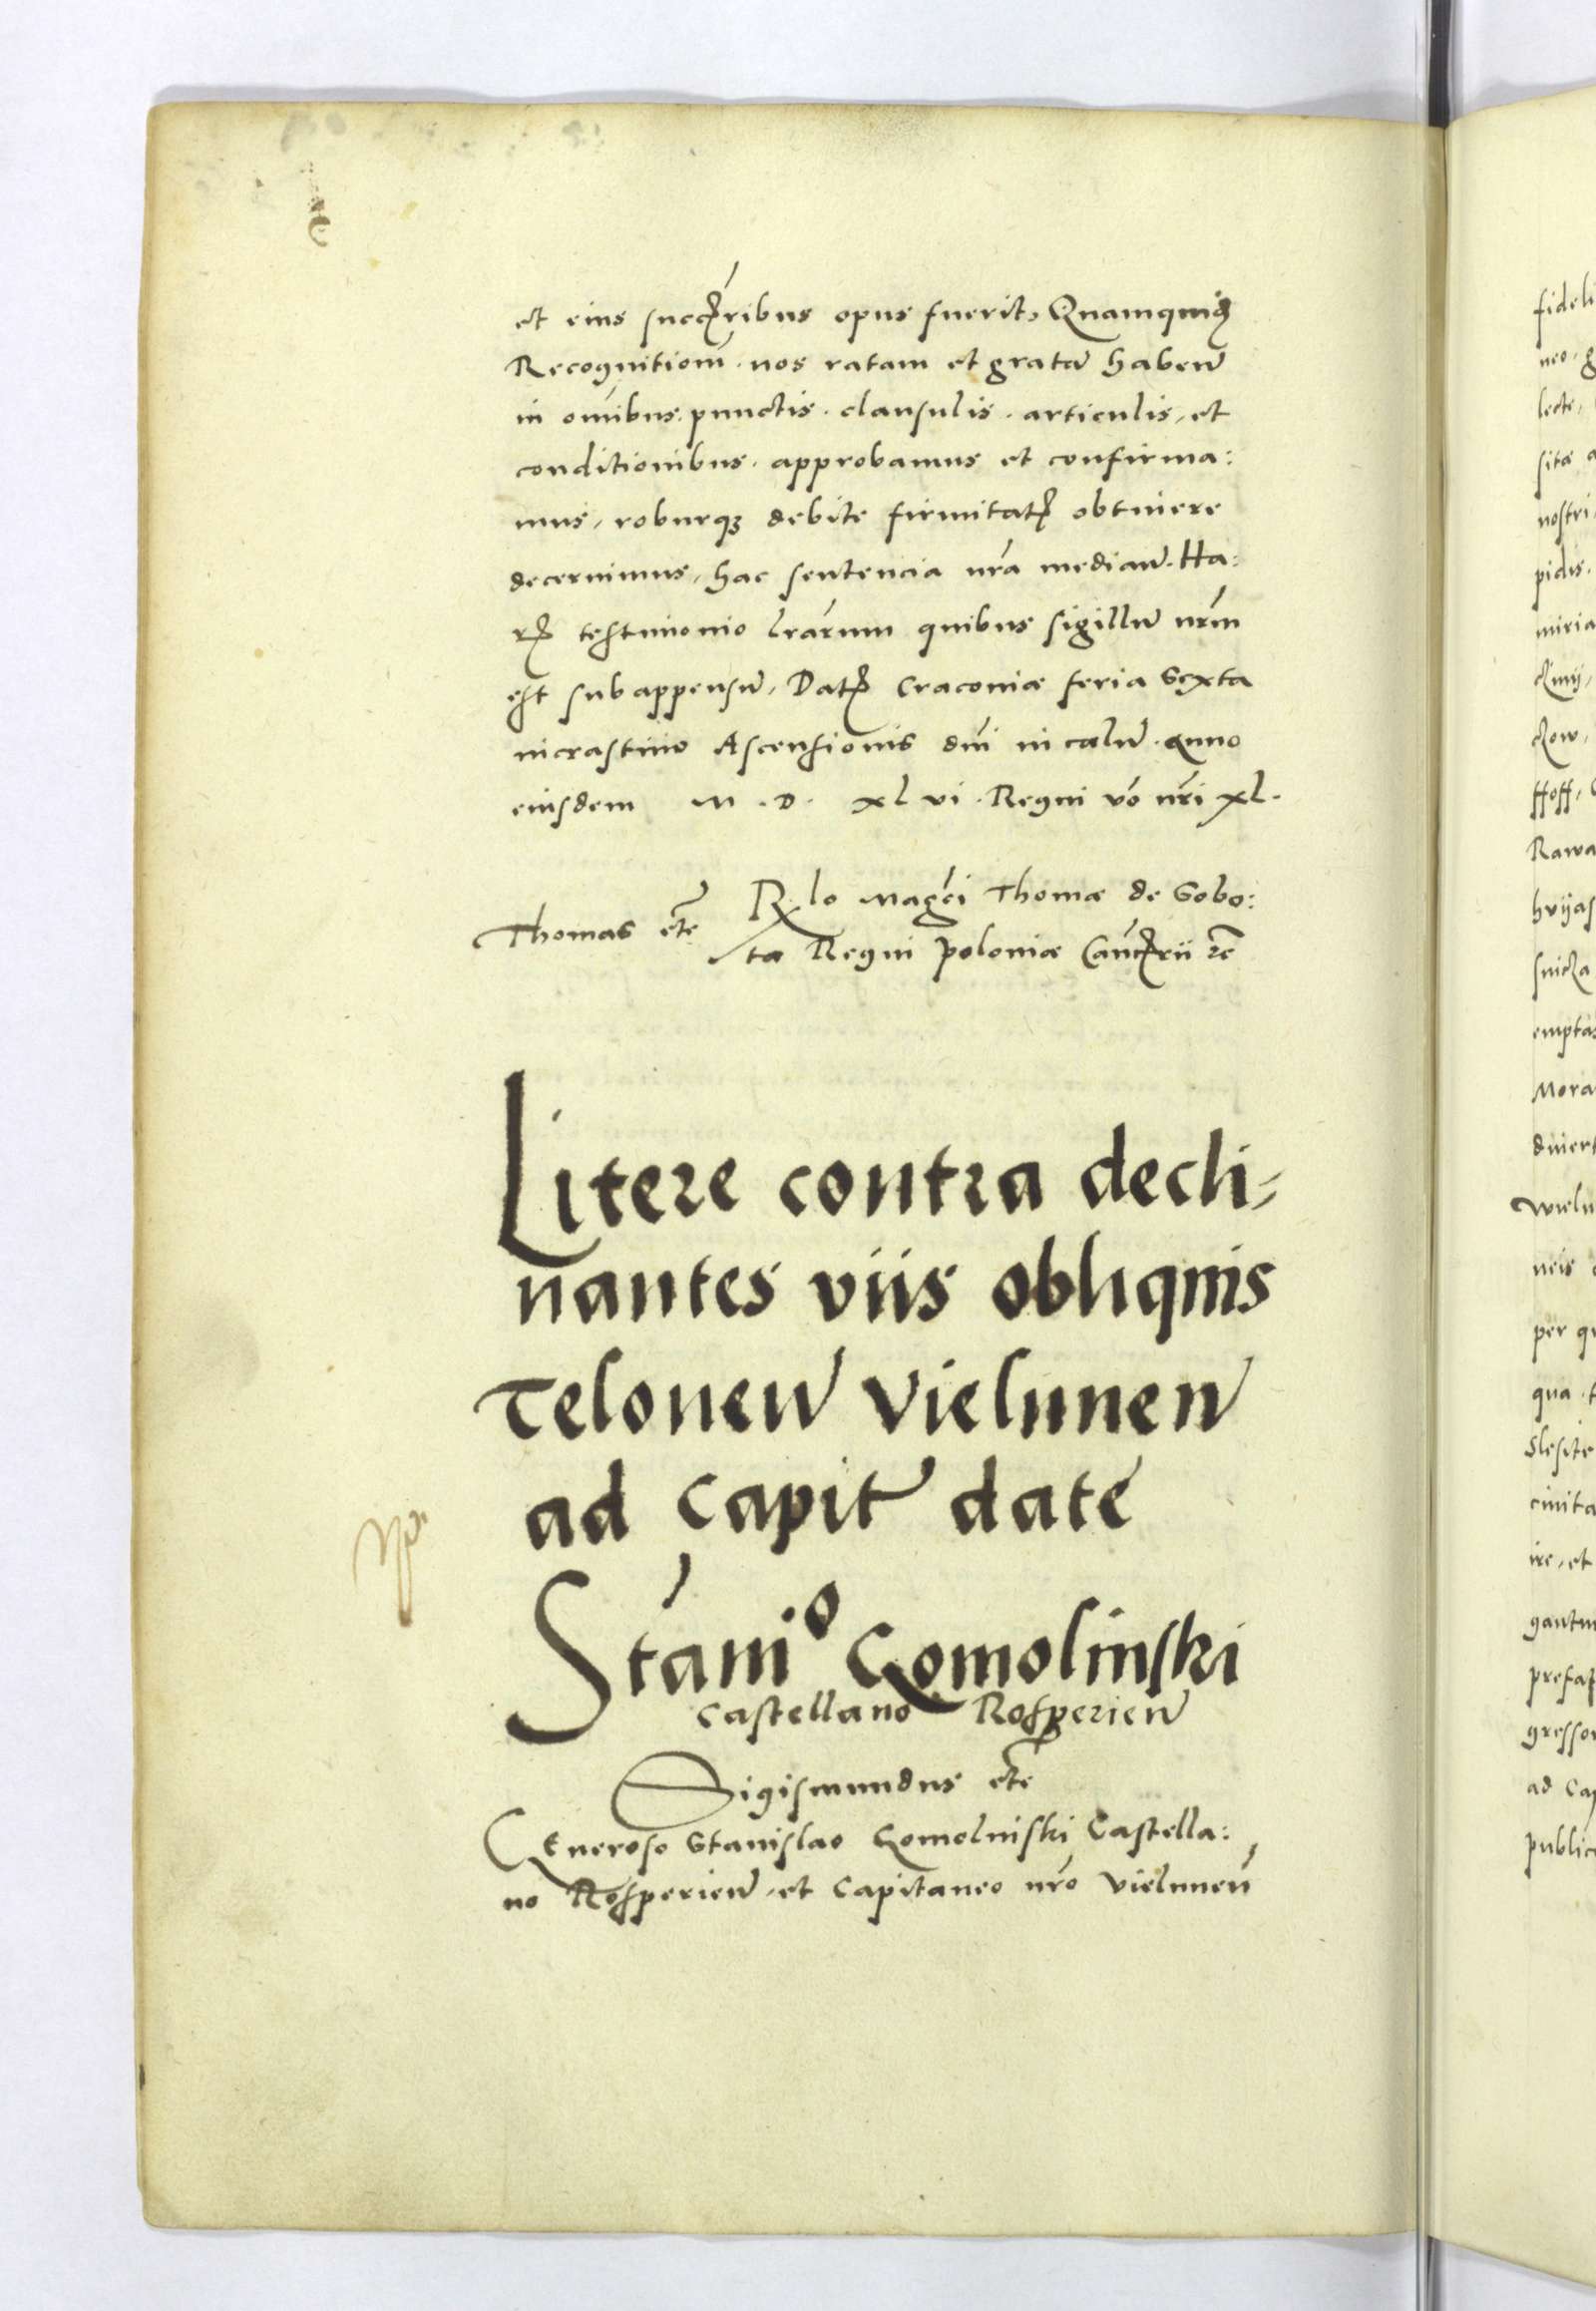 et eius succ̃ribus opus fuerit, Quamquid̃
Recognitiom̃ . nos ratam et gratã habeñ
in om̃ibus . punctis . clausulis . articulis, et
conditionibus . approbamus et confirma:
mus, roburqȝ debite firmitatꝭ obtinere
decernimus, hac sentencia nr̃a median̄. Ha:
rꝝ testimonio lr̃arum quibus sigillũ nr̃m
est subappensũ, Datꝭ Craconiæ feria Sexta
in crastino Ascensionis dñi in cælũ . anno
eiusdem M . D . xl vi . Regni võ nr̃i xl .
Thomas etc̃
Rlo Magc̃i Thomæ de Sobo:
ta Regni Poloniæ Canc̃rii ꝛc̃
Litere contra decli-
nantes viis obliquis
Teloneũ Vielunen̄
ad Capit̃ date
Stãniᵒ Gomolinski
Castellano Rosperien̄
Sigismundus etc̃
Generoso Stanislao Gomolinski Castella:
no Rosperien̄, et Capitaneo nr̃o Vielunen̄
fideli
neo . g
lecte,
sitæ a
nostri
pidis .
miria
czow,
ffoff,
Rawa
emptas
Mora
divert
Wielu
neis
per qu
qua . t
Slesite
civita
ire, et
gantu
prefat
gressor
ad Cap
public